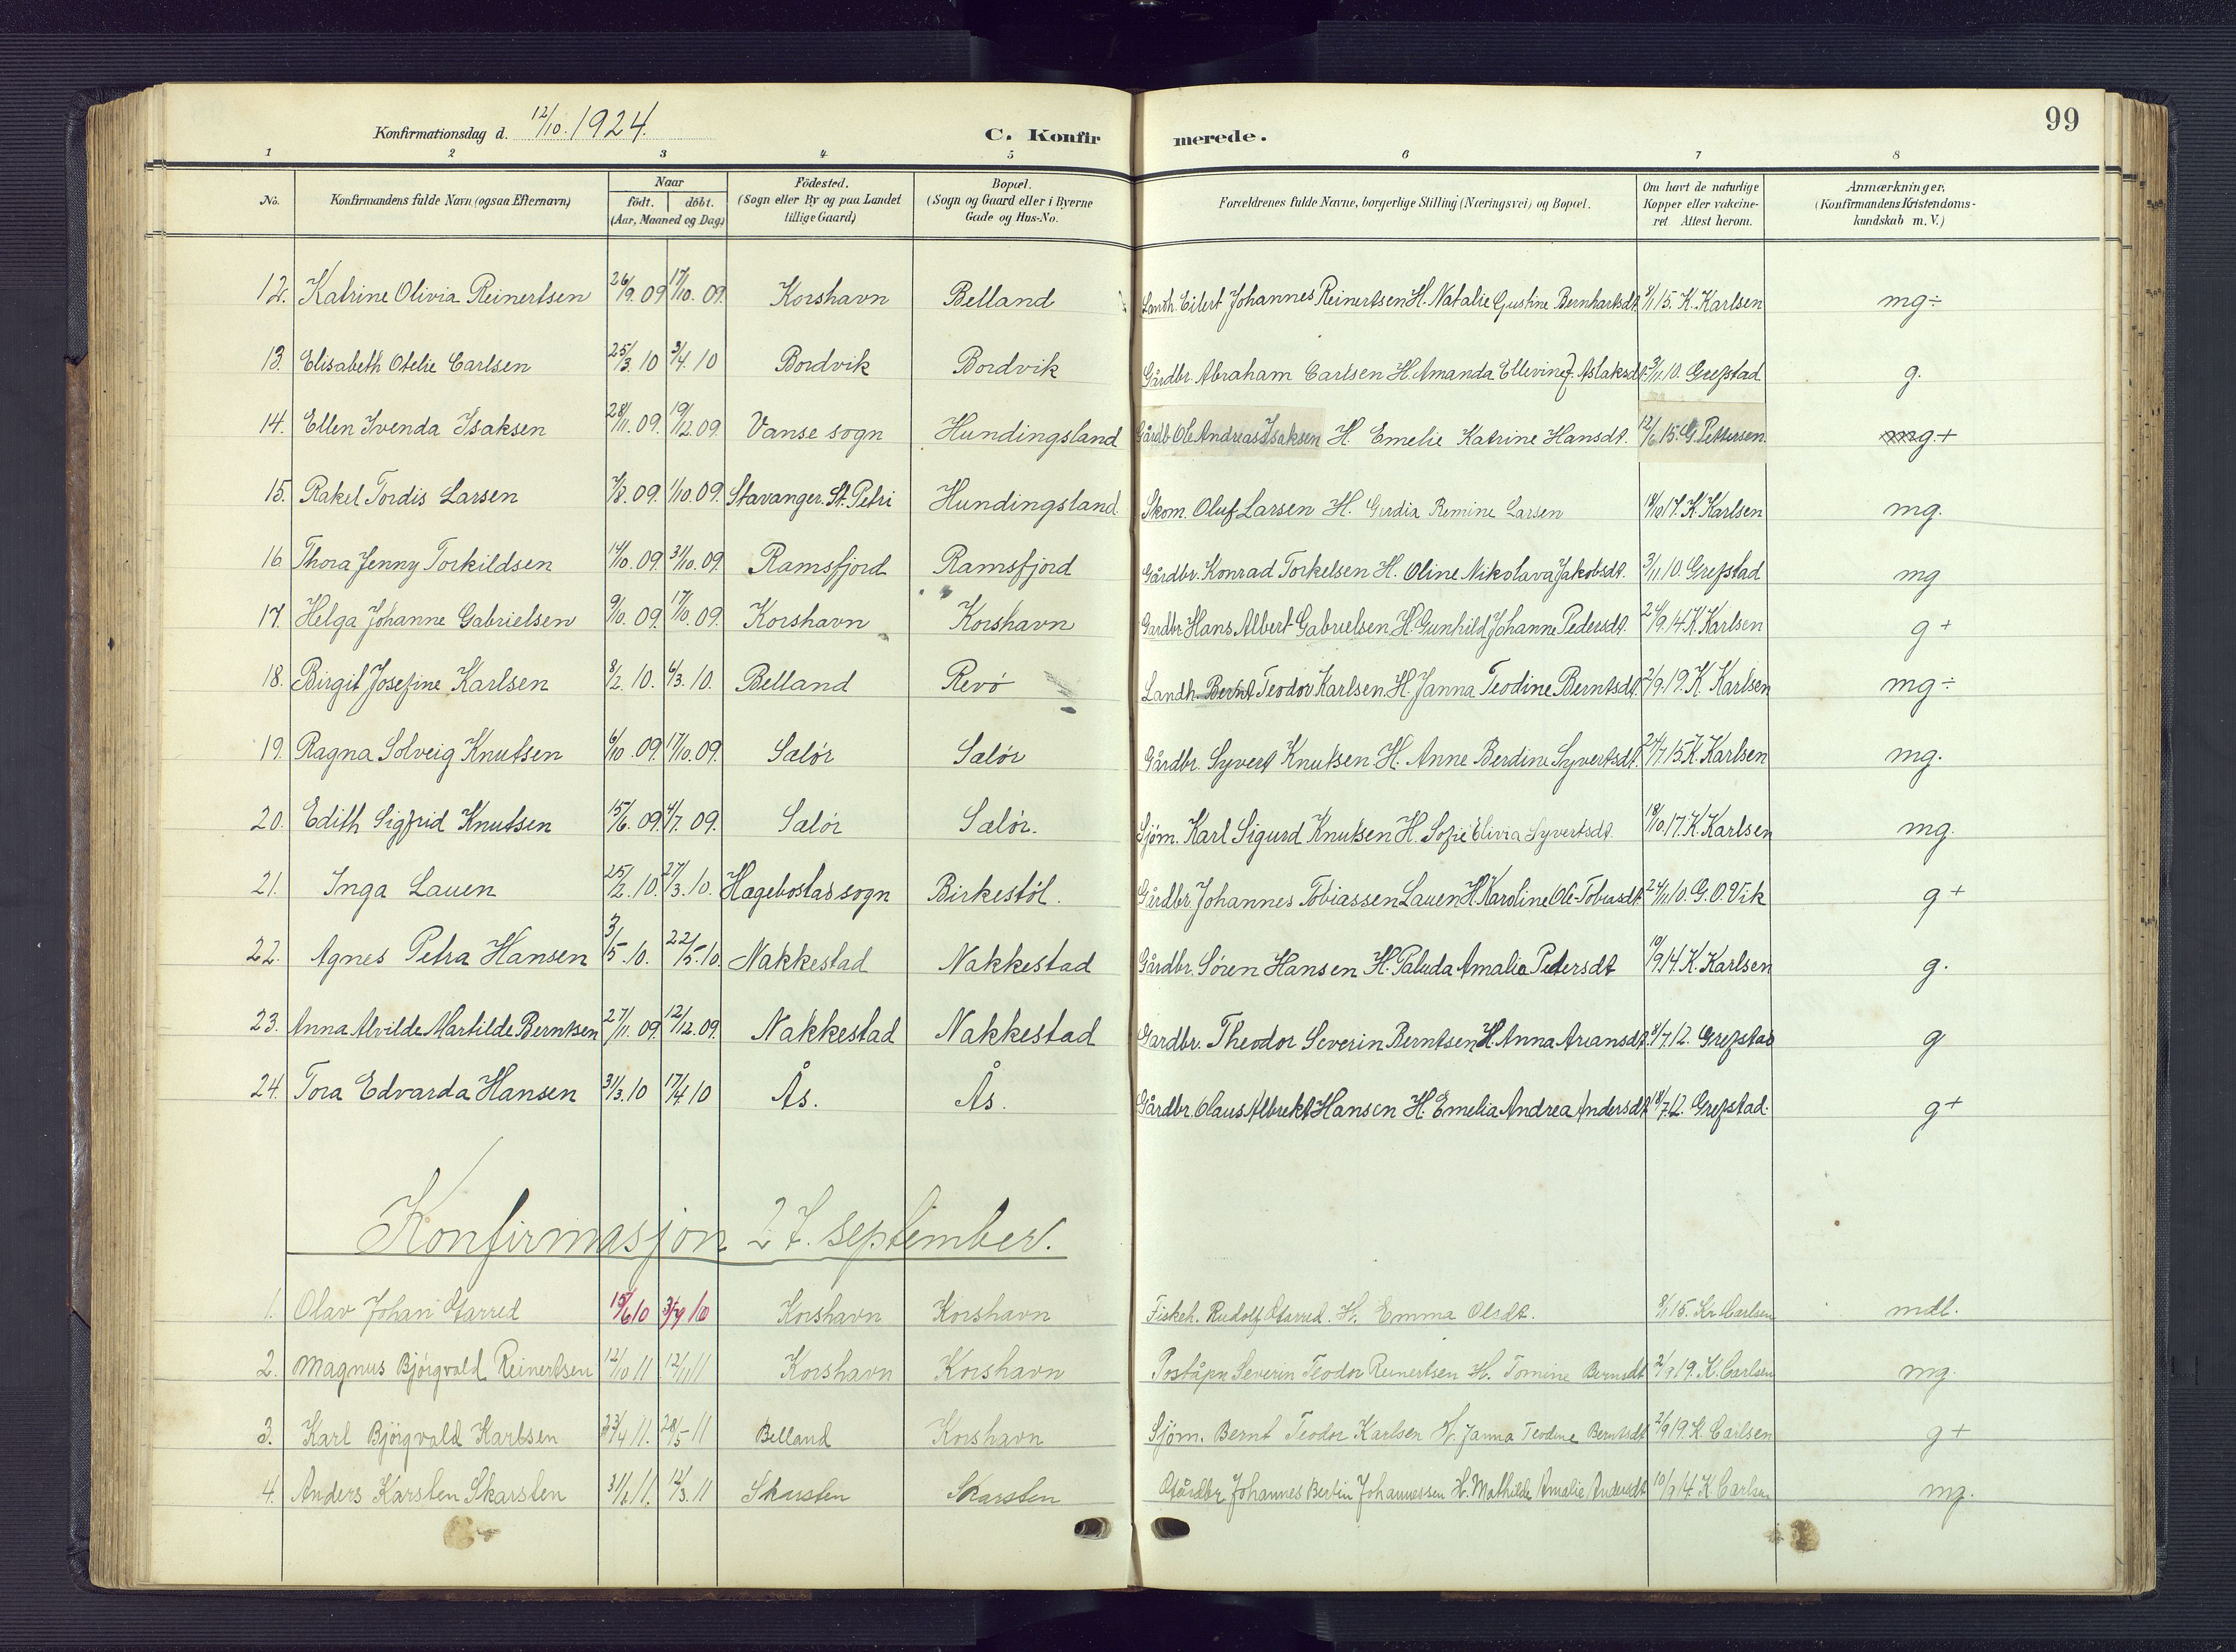 Konfirmationsdag d. 12/10. 1924.
C. Konfirmerede.
99
1 2 3 4 5 6 7 8
No. Konfirmandens fulde Navn (ogsaa Efternavn) Naar födt. döbt. (Aar, Maaned og Dag) Födested. (Sogn eller By og paa Landet tillige Gaard) Bopæl. (Sogn og Gaard eller i Byerne Gade og Hus-No. Forældrenes fulde Navne, borgerlige Stilling (Næringsvei) og Bopæl. Om havt de naturlige Kopper eller vakcineret Attest herom. Anmærkninger, (Konfirmandens Kristendomskundskab m. V.)
12. Katrine Olivia Reinertsen 26/9. 09 17/10. 09. Korshavn Belland Landh. Eilert Johannes Reinertsen H. Natalie Gustine Bernhartsdt. 8/1 15. K. Karlsen mg÷
13. Elisabeth Otelie Carlsen 25/3. 10 3/4. 10 Bordvik Bordvik Gårdbr. Abraham Carlsen H. Amanda Ellevine J. Aslaksdt. 3/11. 10. Grefstad g.
14. Ellen Ivenda Isaksen 28/11. 09. 19/12. 09. Vanse sogn Hundingsland Gårdb. Ole Andreas Isaksen H. Emelie Katrine Hansdt. 12/6 15. G. Pettersen. mg.+
15. Rakel Tordis Larsen 7/8. 09. 1/10. 09. Stavanger. St. Petri Hundingsland Skom. Oluf Larsen H. Gerdia Remine Larsen 18/10 17. K. Karlsen mg.
16 Thora Jenny Torkildsen 14/10. 09. 31/10. 09. Ramsfjord Ramsfjord Gårdbr. Konrad Torkelsen H. Oline Nikolava Jakobsdt. 3/11. 10. Grefstad mg
17. Helga Johanne Gabrielsen 9/10. 09. 17/10. 09. Korshavn Korshavn Gardbr. Hans Albert Gabrielsen H. Gunhild Johanne Pedersdt. 24/9. 14. K. Karlsen g+
18. Birgit Josefine Karlsen 8/2. 10. 6/3. 10. Belland Revö Landh. Bernt Teodor Karlsen. H. Janna Teodine Berntsdt. 2/9. 19. K. Karlsen mg÷
19. Ragna Solveig Knutsen 6/10. 09. 17/10. 09. Salör Salör Gårdbr. Syvert Knutsen H. Anne Berdine Syvertsdt. 24/7 15 K. Karlsen mg.
20. Edith Sigfrid Knutsen 15/6. 09. 4/7. 09. Salör Salör. Sjöm. Karl Sigurd Knutsen H. Sofie Elivia Syvertsdt. 18/10. 17. K. Karlsen mg.
21. Inga Lauen 25/2. 10. 27/3. 10. Hægebostad sogn Birkestöl. Gårdbr. Johannes Tobiassen Lauen H. Karoline Ole-Tobiasdt. 24/11 10. G. O. Vik g+
22. Agnes Petra Hansen 3/5. 10. 22/5. 10. Nakkestad Nakkestad Gårdbr. Sören Hansen H. Paluda Amalia Pedersdt 10/9 14. K. Karlsen g.
23. Anna Alvilde Martilde Berntsen 27/11. 09. 12/12. 09. Nakkestad Nakkestad Gardbr. Theodor Severin Berntsen H. Anna Areansdt. 8/7. 12. Grefstad g
24. Tora Edvarda Hansen 31/3. 10 17/4 10 Ås. Ås. Gårdbr. Olaus Albrekt Hansen H. Emelia Andrea Andersdt. 18/7 12. Grefstad. g+
Konfirmasjon 27. september.
1. Olav Johan Garred 15/6 10 3/7 10 Korshavn Korshavn Fiskeh. Rudolf Garred. H. Emma Olsdt. 8/1 15. Kr. Carlsen mdl.
2. Magnus Bjørgvald Reinertsen 12/10 11 12/11 11 Korshavn Korshavn Poståpn Severin Teodor Reinertsen H. Tomine Bernsdt 2/9 19. K. Carlsen mg.
3. Karl Bjørgvald Karlsen 23/4 11. 28/5 11 Belland Korshavn Sjöm. Bernt Teodor Karlsen H. Janna Teodine Berntsdt 2/9 19. K. Carlsen g+
4. Anders Karsten Skarsten 31/1 11. 12/3. 11 Skarsten Skarsten Gårdbr Johannes Bertin Johannessen H. Mathilde Amalie Andersdt 10/9 14. K. Carlsen mg.